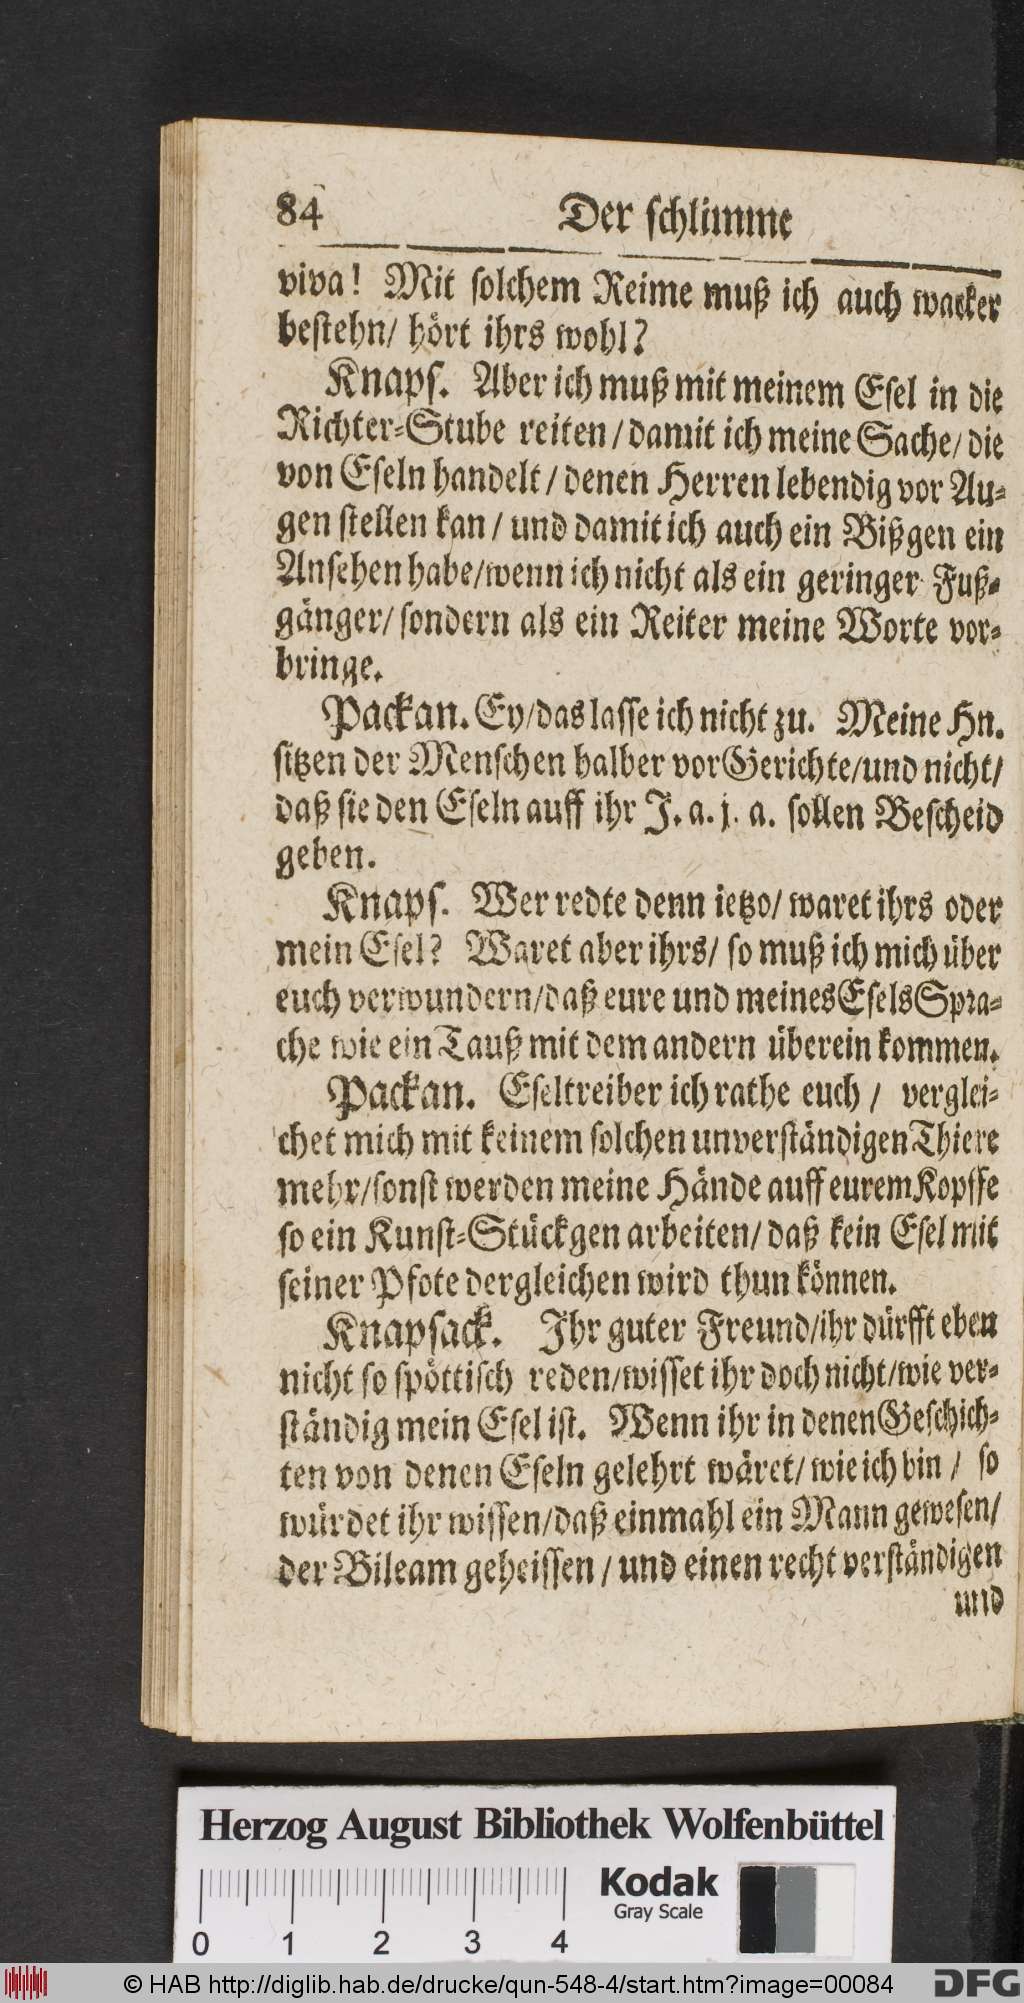 84 Der schlimme
viva! Mit solchem Reime muß ich auch wacker
bestehn/ hört ihrs wohl?
Knaps. Aber ich muß mit meinem Esel in die
Richter-Stube reiten/ damit ich meine Sache/ die
von Eseln handelt/ denen Herren lebendig vor Au-
gen stellen kan/ und damit ich auch ein Bißgen ein
Ansehen habe/ wenn ich nicht als ein geringer Fuß-
gänger/ sondern als ein Reiter meine Worte vor-
bringe.
Packan. Ey/ das lasse ich nicht zu. Meine Hn.
sitzen der Menschen halber vor Gerichte/ und nicht/
daß sie den Eseln auff ihr J. a. j. a. sollen Bescheid
geben.
Knaps. Wer redte denn ietzo/ waret ihrs oder
mein Esel? Waret aber ihrs/ so muß ich mich über
euch verwundern/ daß eure und meines Esels Spra-
che wie ein Tauß mit dem andern überein kommen.
Packan. Eseltreiber ich rathe euch / verglei-
chet mich mit keinem solchen unverständigen Thiere
mehr/ sonst werden meine Hände auff eurem Kopffe
so ein Kunst-Stückgen arbeiten/ daß kein Esel mit
seiner Pfote dergleichen wird thun können.
Knapsack. Ihr guter Freund/ ihr dürfft eben
nicht so spöttisch reden/ wisset ihr doch nicht/ wie ver-
ständig mein Esel ist. Wenn ihr in denen Geschich-
ten von denen Eseln gelehrt wäret/ wie ich bin / so
würdet ihr wissen/ daß einmahl ein Mann gewesen/
der Bileam geheissen / und einen recht verständigen
und
Herzog August Bibliothek Wolfenbüttel
Kodak
Gray Scale
0 1 2 3 4
© HAB http://diglib.hab.de/drucke/qun-548-4/start.htm?image=00084
DFG